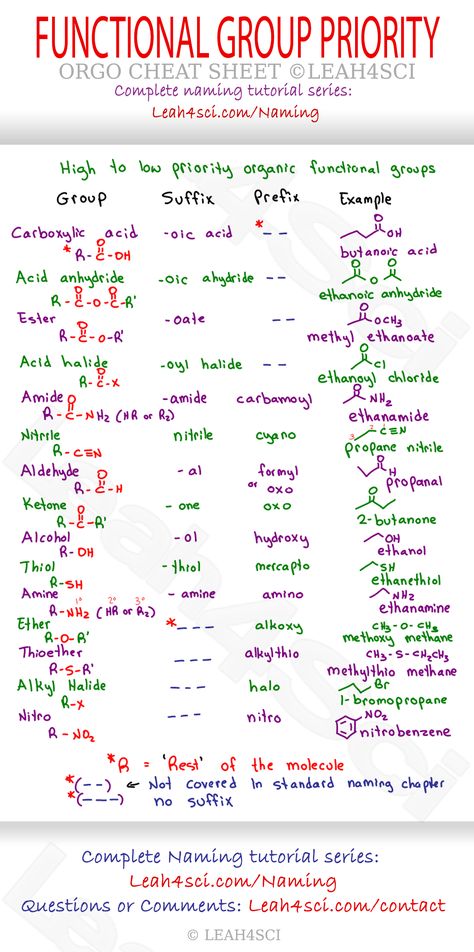 FUNCTIONAL GROUP PRIORITY
ORGO CHEAT SHEET ©LEAH4SCI
Complete naming tutorial series:
Leah4sci.com/Naming
High to low priority organic functional groups
Group Suffix Prefix Example
Carboxylic acid -oic acid *-- 
* R-C-OH O OH O
butanoic acid
Acid anhydride -oic ahydride --
R-C-O-C-R' O O O O O
ethanoic anhydride
Ester -oate -- O OCH3
R-C-O-R' O
methyl ethanoate
Acid halide -oyl halide -- O Cl
R-C-X O
ethanoyl chloride
Amide -amide carbamoyl O NH2
R-C-NH2 (HR or R2) O
ethanamide
Nitrile nitrile cyano 3 2 1 C≡N
R-C≡N
propane nitrile
Aldehyde -al formyl or oxo O H
R-C-H O
propanal
Ketone -one oxo O
R-C-R' O
2-butanone
Alcohol -ol hydroxy OH
R-OH
ethanol
Thiol -thiol mercapto SH
R-SH
ethanethiol
Amine -amine amino NH2
R-NH2 (HR or R2) 1° 2° 3°
ethanamine
Ether *--- alkoxy CH3-O-CH3
R-O-R'
methoxy methane
Thioether --- alkylthio CH3-S-CH2CH3
R-S-R'
methylthio methane
Alkyl Halide --- halo Br
R-X
1-bromopropane
Nitro --- nitro NO2
R-NO2
nitrobenzene
*R = 'Rest' of the molecule
*(--) ← Not covered in standard naming chapter
*(---) no suffix
Complete Naming tutorial series:
Leah4sci.com/Naming
Questions or Comments: Leah4sci.com/contact
© LEAH4SCI
Leah4sci